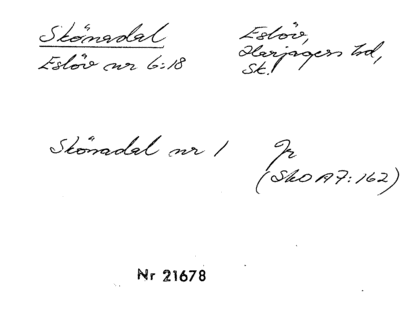 Skönadal
Eslöv nr 6:18
Eslöv,
Harjagers hd,
Sk.
Skönadal nr 1
Jr
(SkO A7:162)
Nr 21678